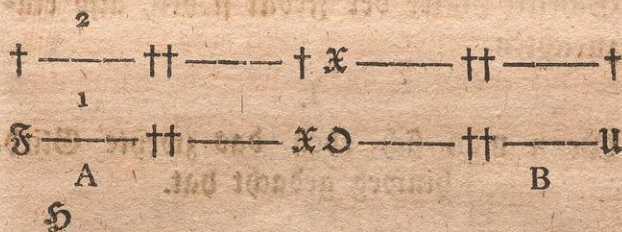 2
† ——— †† ——— † X ——— †† ——— †
1
F ——— †† ——— X O ——— †† ——— U
A B
H